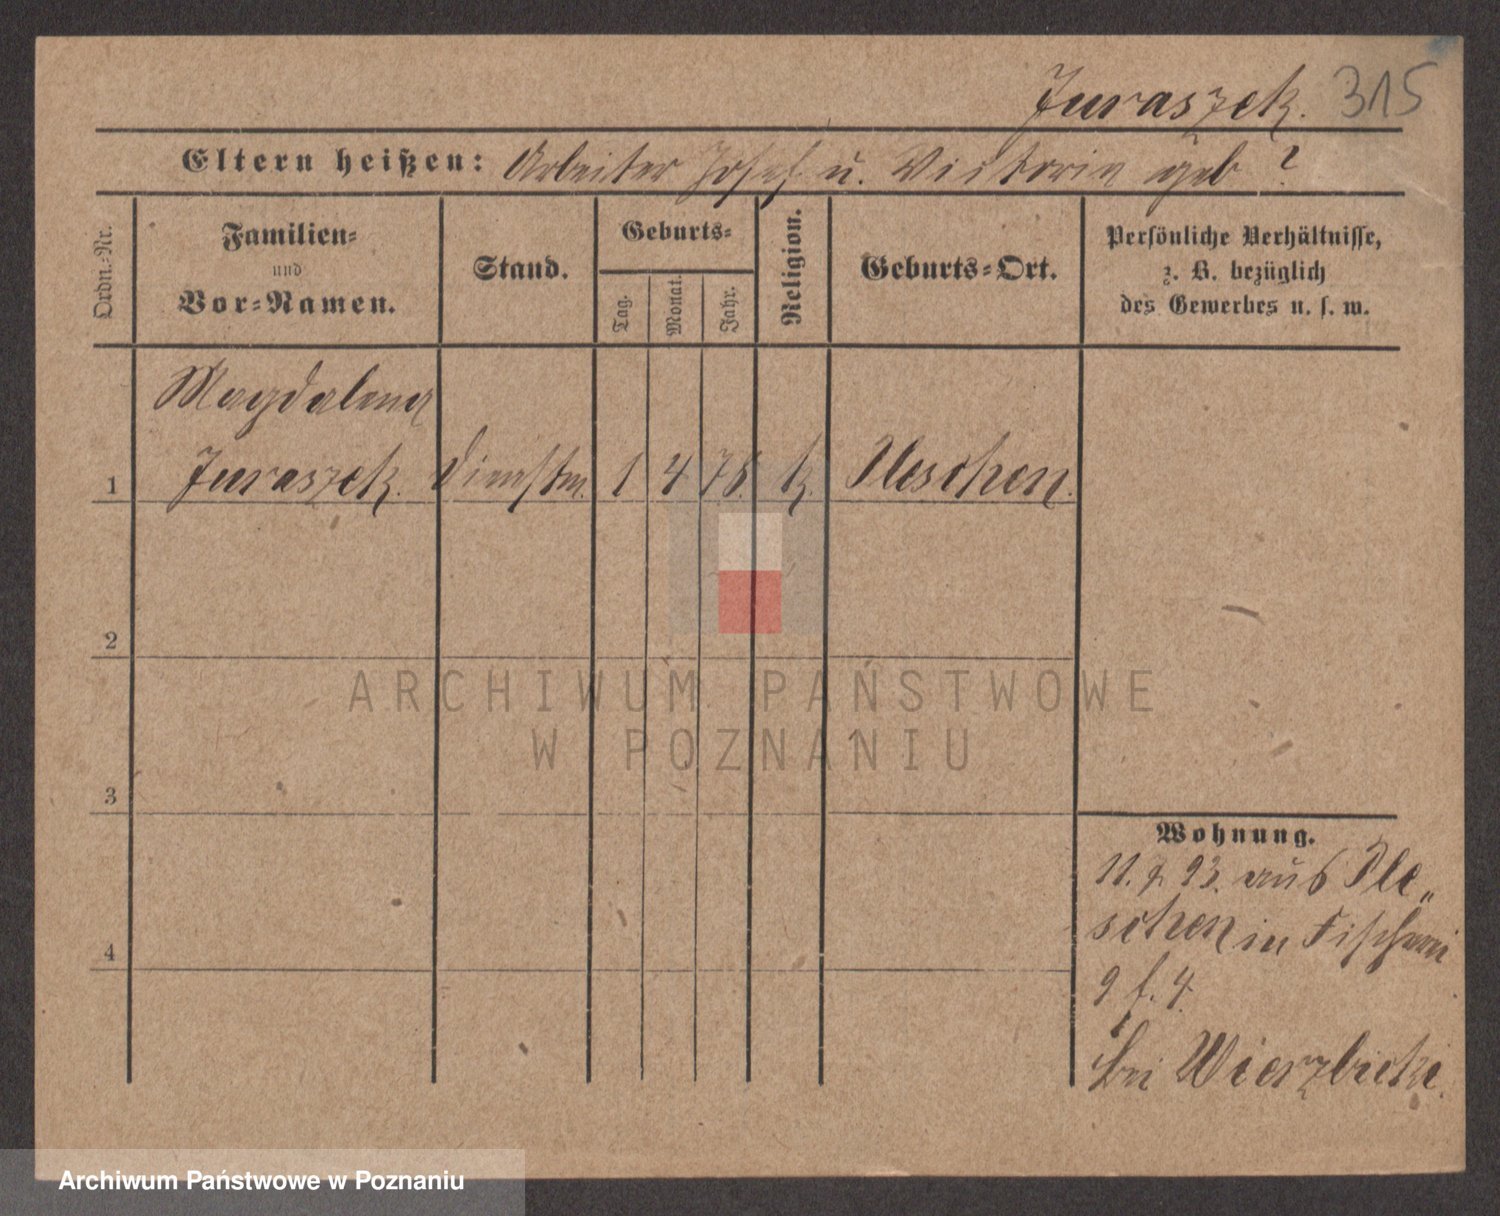 Juraszek. 315
Eltern heißen: Arbeiter Josef u. Victoria geb ?
Ordn.-Nr.
Familien-
und
Vor-Namen.
Stand.
Geburts-
Tag.
Monat.
Jahr.
Religion.
Geburts-Ort.
Persönliche Verhältnisse,
z. B. bezüglich
des Gewerbes u. s. w.
Magdalena
1 Juraszek. Dienstm. 1 4 75. k. Pleschen.
2
3
4
ARCHIWUM PAŃSTWOWE
W POZNANIU
Wohnung.
11. 7. 93. aus Ple„
schen in Fischerei
9 f. 4.
bei Wierzbicki.
Archiwum Państwowe w Poznaniu